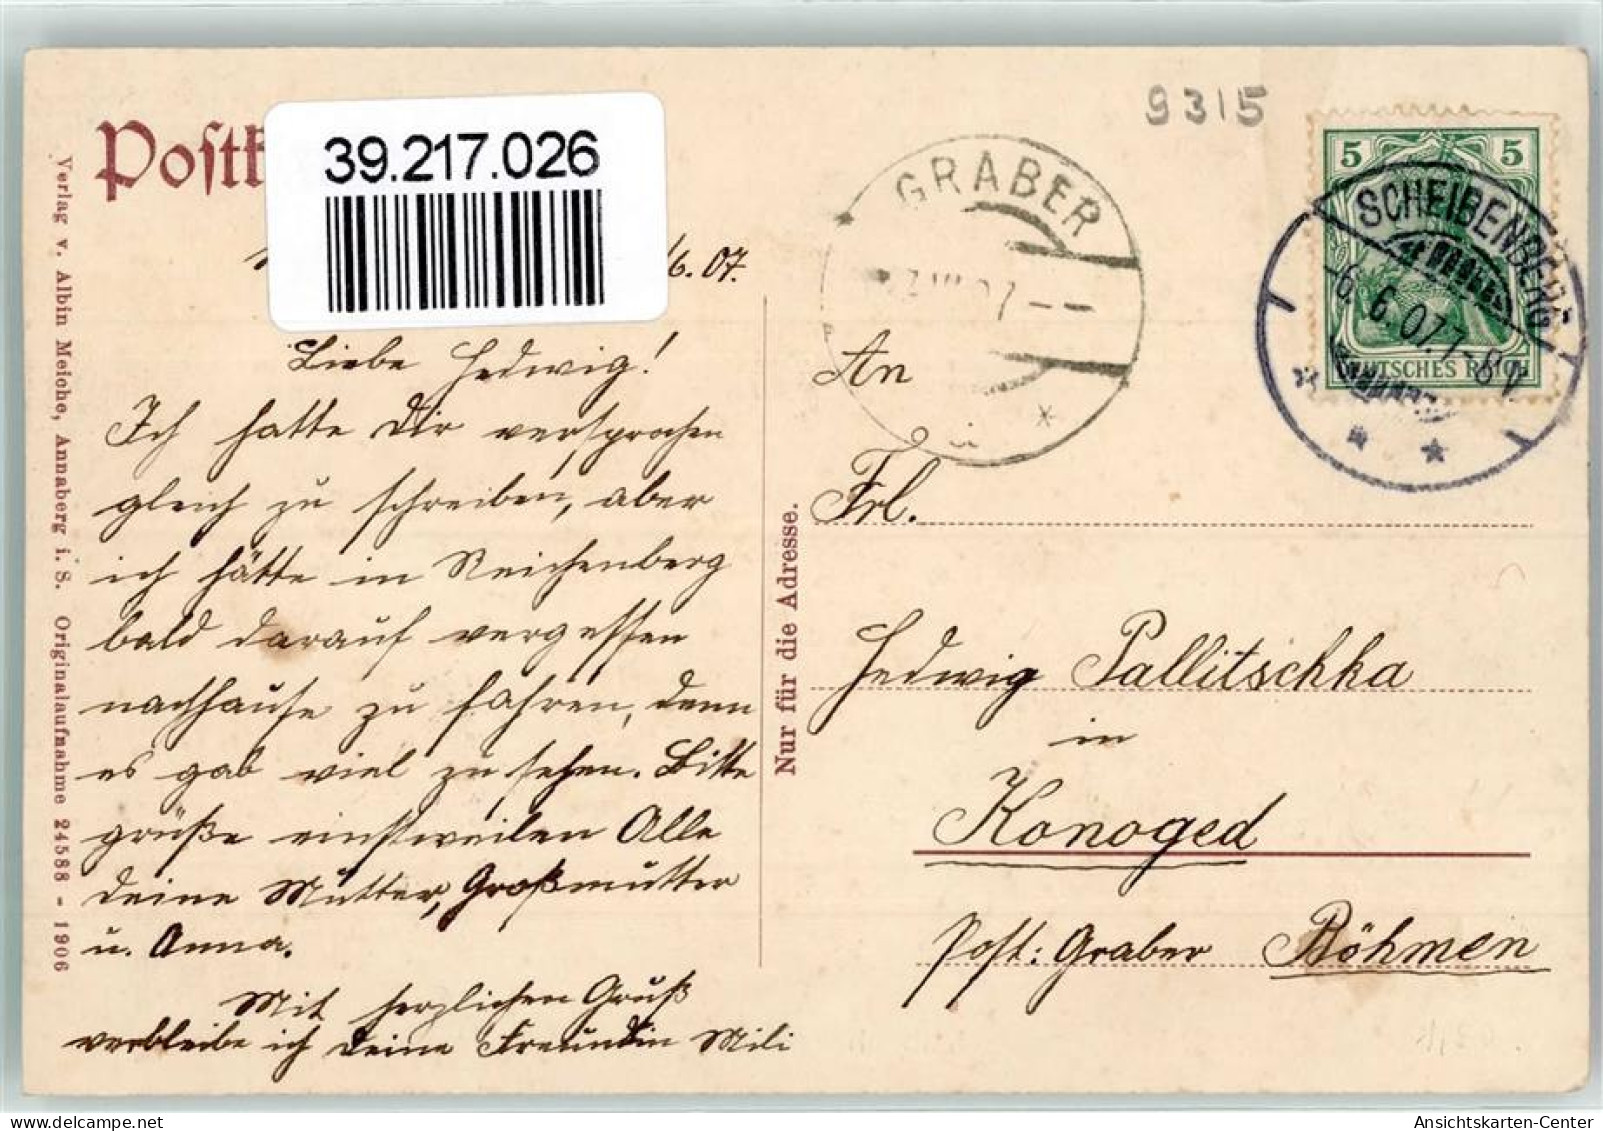 9315
39.217.026
GRABER
5 5
SCHEIBENBERG
-6. 6. 07. 7-8 V
DEUTSCHES REICH
/6. 07.
Liebe Hedwig!
Ich hatte Dir versprochen
gleich zu schreiben, aber
ich hätte in Reichenberg
bald darauf vergessen
nachhause zu fahren, denn
es gab viel zu sehen. Bitte
grüße einstweilen Alle
deine Mutter, Großmutter
u. Anna.
Mit herzlichen Gruß
verbleibe ich Deine Freundin Mili
Verlag v. Albin Meiche, Annaberg i. S. Originalaufnahme 24588 - 1906
Nur für die Adresse.
An
Frl.
Hedwig Pallitschka
in
Konoged
Post: Graber Böhmen
Ansichtskarten-Center